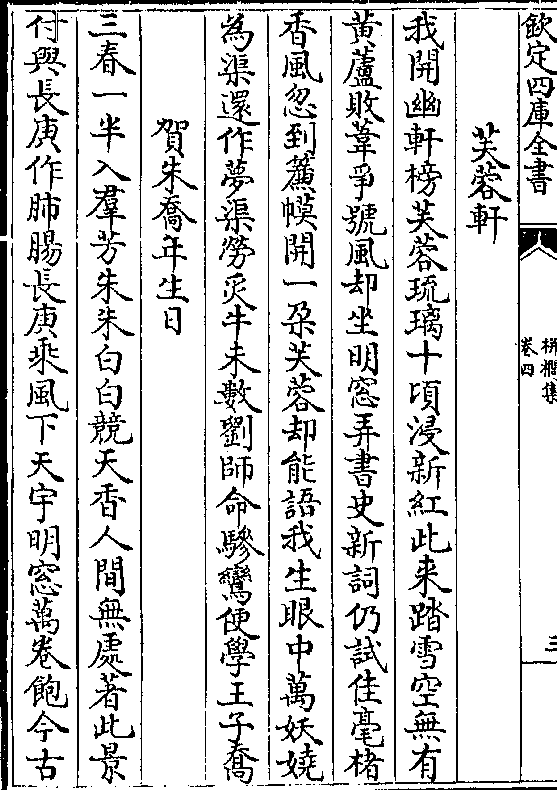 欽定四庫全書
栟櫚集
卷四
三
芙蓉軒
我開幽軒榜芙蓉琉璃十頃浸新紅此来踏雪空無有
黄蘆敗葦爭號風却坐明窓弄書史新詞仍試佳毫楮
香風忽到簾幙開一朶芙蓉却能語我生眼中萬妖嬈
為渠還作夢渠勞炙牛未數劉師命驂鸞便學王子喬
賀朱喬年生日
三春一半入羣芳朱朱白白競天香人間無處著此景
付與長庚作肺腸長庚乘風下天宇明窓萬卷飽今古